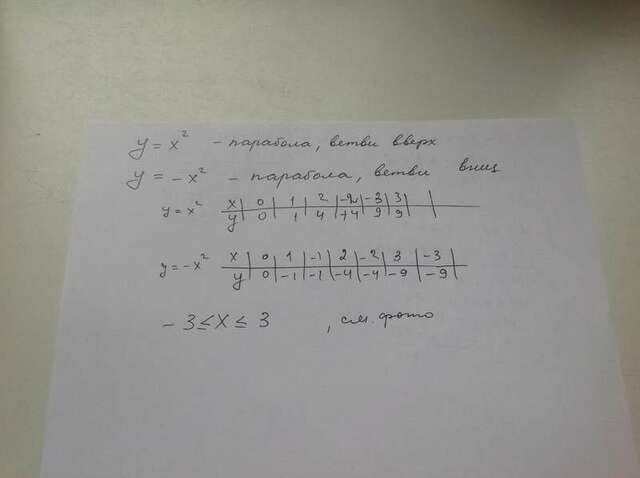 y = x² - парабола, ветви вверх
y = - x² - парабола, ветви вниз
y = x² x | 0 | 1 | 2 | -2 | -3 | 3 |
y | 0 | 1 | 4 | +4 | 9 | 9 |
y = -x² x | 0 | 1 | -1 | 2 | -2 | 3 | -3 |
y | 0 | -1 | -1 | -4 | -4 | -9 | -9 |
- 3 ≤ x ≤ 3 , см. фото